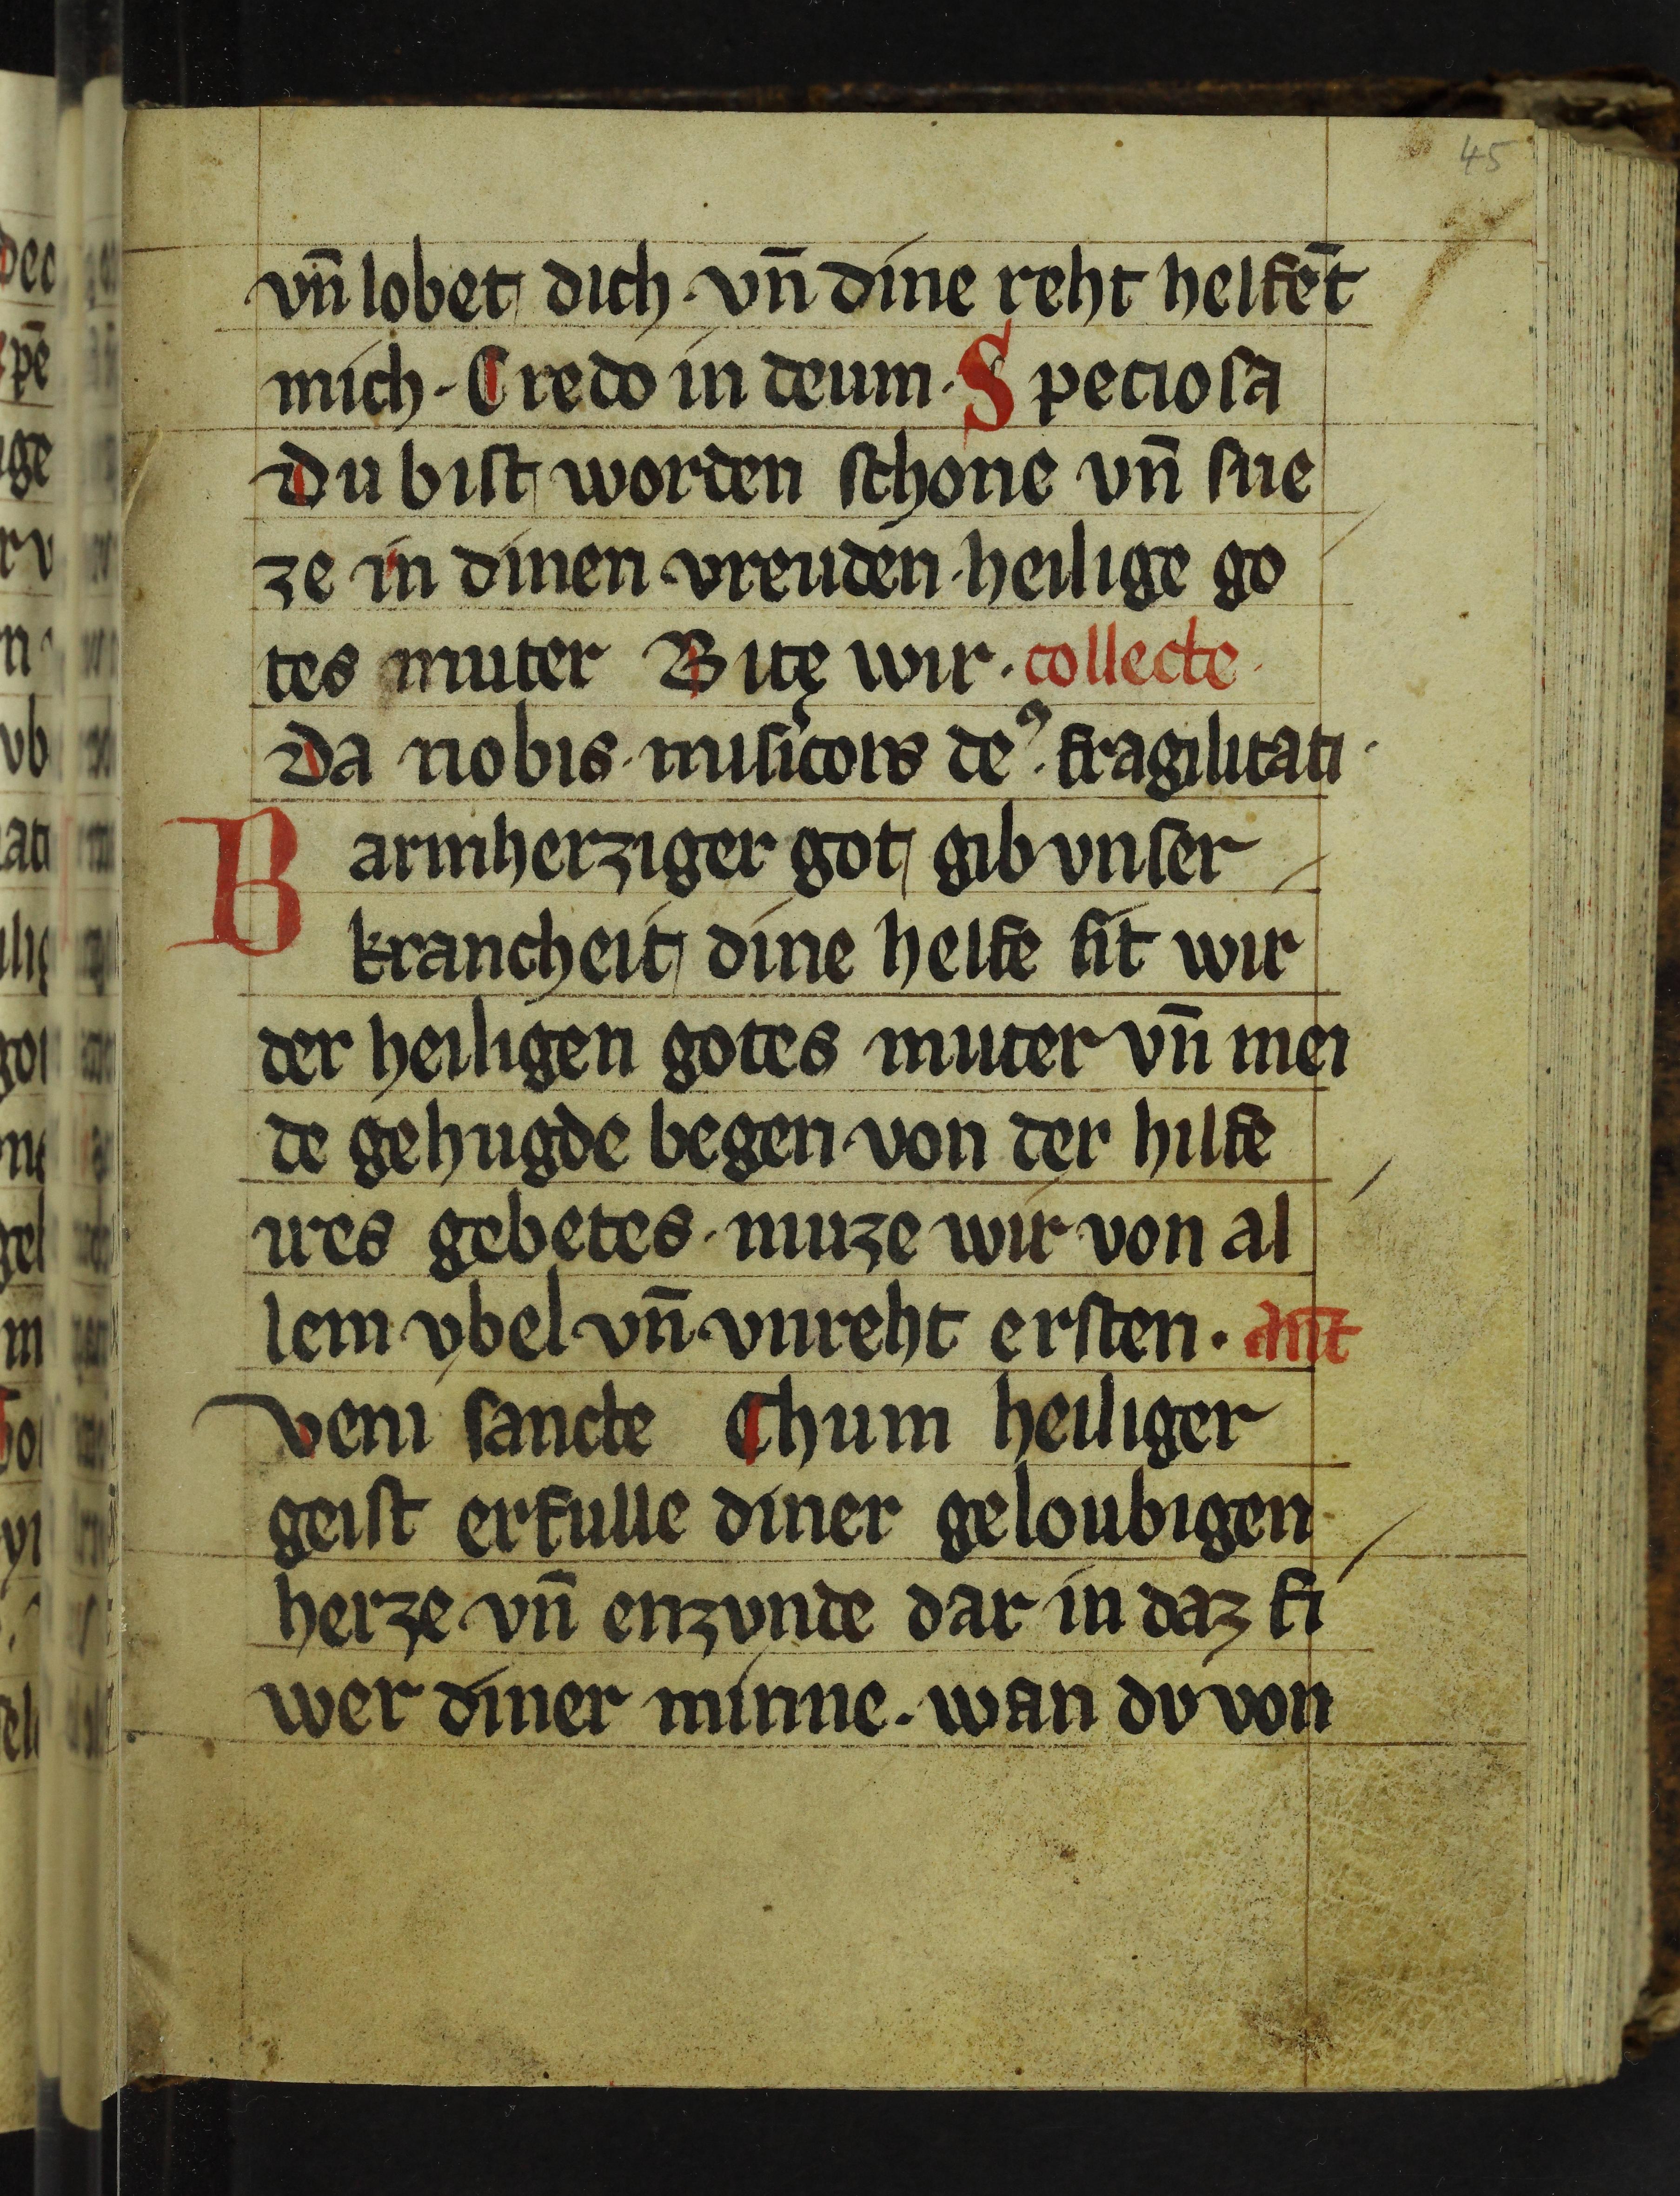 45
vn̄ lobet dich · vn̄ dine reht helfēt
mich · Credo in deum · Speciosa
Du bist worden schone vn̄ sue
ze in dinen vreuden · heilige go
tes muter Bitę wir · collecte ·
Da nobis · misicors deꝰ · fragilitati ·
Barmherziger got gib vnser
krancheit dine helfe sit wir
der heiligen gotes muter vn̄ mei
de gehugde begen von der hilfe
ires gebetes · muze wir von al
lem vbel vn̄ vnreht ersten · Ant̄
veni sancte Chum heiliger
geist erfulle diner geloubigen
herze vn̄ enzvnde dar in daz fi
wer diner minne · wan dv von